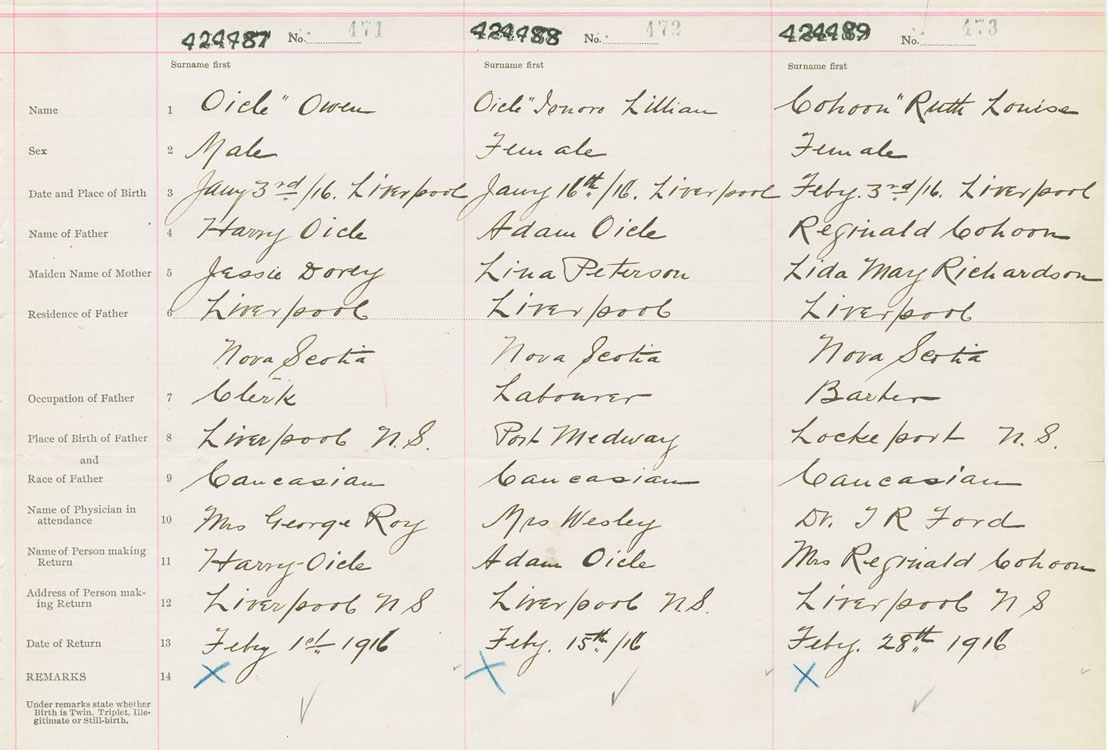 424487 No. 471 424488 No. 472 424489 No. 473
Surname first Surname first Surname first
Name 1 Oicle" Owen Oicle" Lillian Cohoon" Ruth Louise
Sex 2 Male Female Female
Date and Place of Birth 3 Jany 3rd/16. Liverpool Jany 16th/16. Liverpool Feby. 3rd/16. Liverpool
Name of Father 4 Harry Oicle Adam Oicle Reginald Cohoon
Maiden Name of Mother 5 Jessie Dorey Lina Peterson Lida May Richardson
Residence of Father 6 Liverpool Liverpool Liverpool
Nova Scotia Nova Scotia Nova Scotia
Occupation of Father 7 Clerk Labourer Barber
Place of Birth of Father 8 Liverpool N.S. Port Medway Lockeport N.S.
and
Race of Father 9 Caucasian Caucasian Caucasian
Name of Physician in
attendance 10 Mrs George Roy Mrs Wesley Dr. J R Ford
Name of Person making
Return 11 Harry Oicle Adam Oicle Mrs Reginald Cohoon
Address of Person mak-
ing Return 12 Liverpool N S Liverpool N.S. Liverpool N S
Date of Return 13 Feby 1st 1916 Feby. 15th/16 Feby. 28th 1916
REMARKS 14 X X X
Under remarks state whether
Birth is Twin, Triplet, Ille-
gitimate or Still-birth.